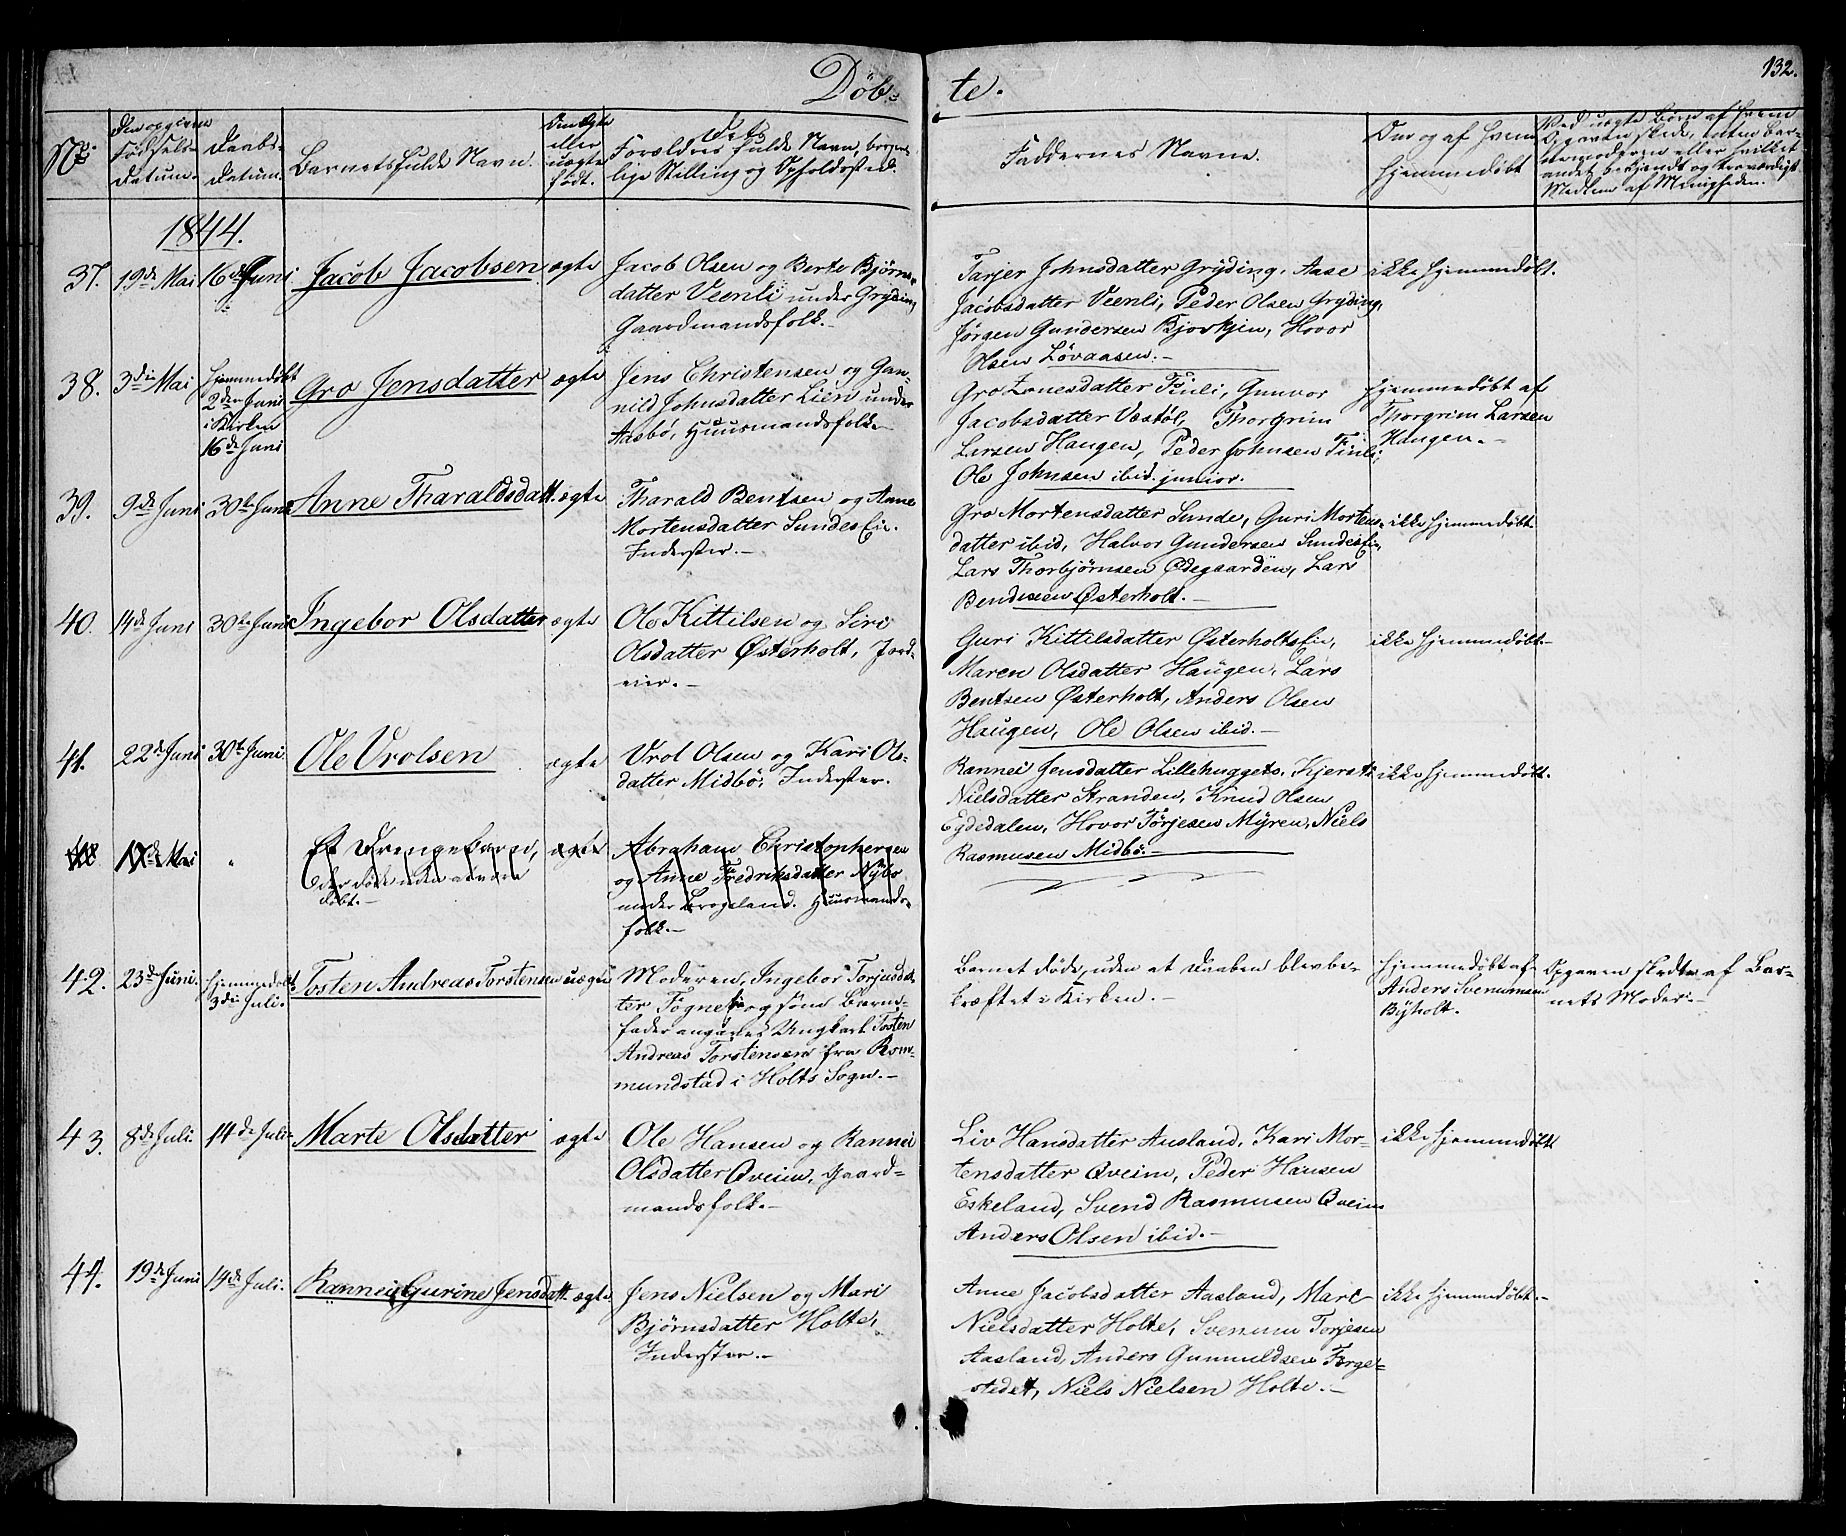 Döb-te.
132.
No.
Den opgivne Födsels-Datum.
Daabs-Datum.
Barnets fulde Navn.
Om ægte eller uægte født.
Forældres fulde Navn, borger-
lige Stilling og Opholdssted.
Faddernes Navne.
Om og af hvem
hjemmedøbt
Ved uægte Børn af hvem
Opgaven skede, enten Bar-
nemoderen eller hvilket
andet bekjendt og troværdigt
Medlem af Menigheden.
1844.
37. 19de Mai 16de Juni Jacob Jacobsen ægte
Jacob Olsen og Berte Bjørns-
datter Veenli under Gryding,
Gaardmandsfolk.-
Tarjer Johnsdatter Gryding, Aase
Jacobsdatter Veenli, Peder Olsen Gryding,
Jørgen Gundersen Bjorkjin, Hovor
Olsen Lövaasen.-
ikke hjemmedøbt.
38. 3die Mai hjemmedöbt
2den Juni
i Kirken
16de Juni
Gro Jensdatter ægte
Jens Christensen og Gun-
nild Johnsdatter Lien under
Aasbö, Huusmandsfolk.-
Gro Zonesdatter Finli, Gunvor
Jacobsdatter Vestöl, Thorgrim
Larsen Haugen, Peder Johnsen Finli,
Ole Johnsen ibid. junior.-
hjemmedøbt af
Thorgrim Larsen
Haugen.-
39. 9de Juni 30te Juni Anne Tharaldsdatt. ægte
Tharald Bentsen og Anne
Mortensdatter SundesEie.
Inderster.-
Gro Mortensdatter Sunde, Guri Mortens-
datter ibid, Halvor Gundersen SundesEie,
Lars Thorbjørnsen Ødegaarden, Lars
Bendixen Østerholt.-
ikke hjemmedöbt
40. 14de Juni 30te Juni Ingebor Olsdatter ægte
Ole Kittilsen og Siri
Olsdatter Østerholt, Jord-
eier.-
Guri Kittilsdatter ØsterholtsEie,
Maren Olsdatter Haugen, Lars
Bentsen Østerholt, Anders Olsen
Haugen, Ole Olsen ibid.-
ikke hjemmedøbt.-
41. 22de Juni 30te Juni. Ole Vrolsen ægte
Vrol Olsen og Kari Ols-
datter Midbö, Inderster.
Rannei Jensdatter Lillehuggets, Kjersti
Nielsdatter Stranden, Knud Olsen
Egdedalen, Hovor Törjesen Myren, Niels
Rasmusen Midbö.-
ikke hjemmedöbt.
Mai " Et Drengebarn, ægte
der döde uden at være
döbt.-
Abraham Christophersen
og Anne Fredriksdatter Nybö
under Krogeland. Huusmands-
folk.-
42. 23de Juni. hjemmedøbt
3die Juli.
Tosten Andreas Torstensen uægte
Moderen, Ingebor Torjusdat-
ter Fogne og som Barne-
fader angives Ungkarl Tosten
Andreas Torstensen fra Rom-
mundstad i Holts Sogn.-
Barnet døde, uden at Daaben blev be-
kræftet i Kirken.-
hjemmedøbt af
Anders Svenumsen
Byholt.
Opgaven skede af Bar-
nets Moder.-
43. 8de Juli. 14de Juli. Marte Olsdatter ægte
Ole Hansen og Rannei
Olsdatter Qveim, Gaard-
mandsfolk.-
Liv Hansdatter Ausland, Kari Mor-
tensdatter Qveim, Peder Hansen
Eskeland, Svend Rasmusen Qveim
Anders Olsen ibid.-
ikke hjemmedöbt
44. 19de Juni 14de Juli. Rannei Gurine Jensdatt. ægte
Jens Nielsen og Mari
Bjørnsdatter Holte,
Inderster.-
Anne Jacobsdatter Aasland, Mare
Nielsdatter Holte, Svenum Torjesen
Aasland, Anders Gunnuldsen Forge-
stedet, Niels Nielsen Holte.-
ikke hjemmedøbt.-